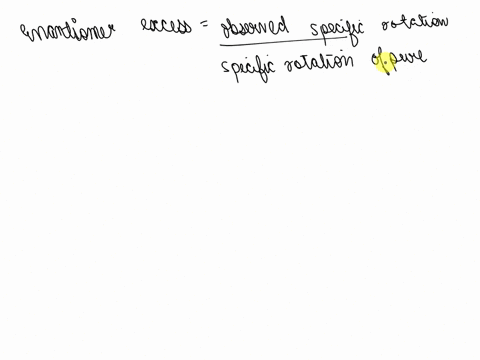 enantiomer excess = observed specific rotation
specific rotation of pure